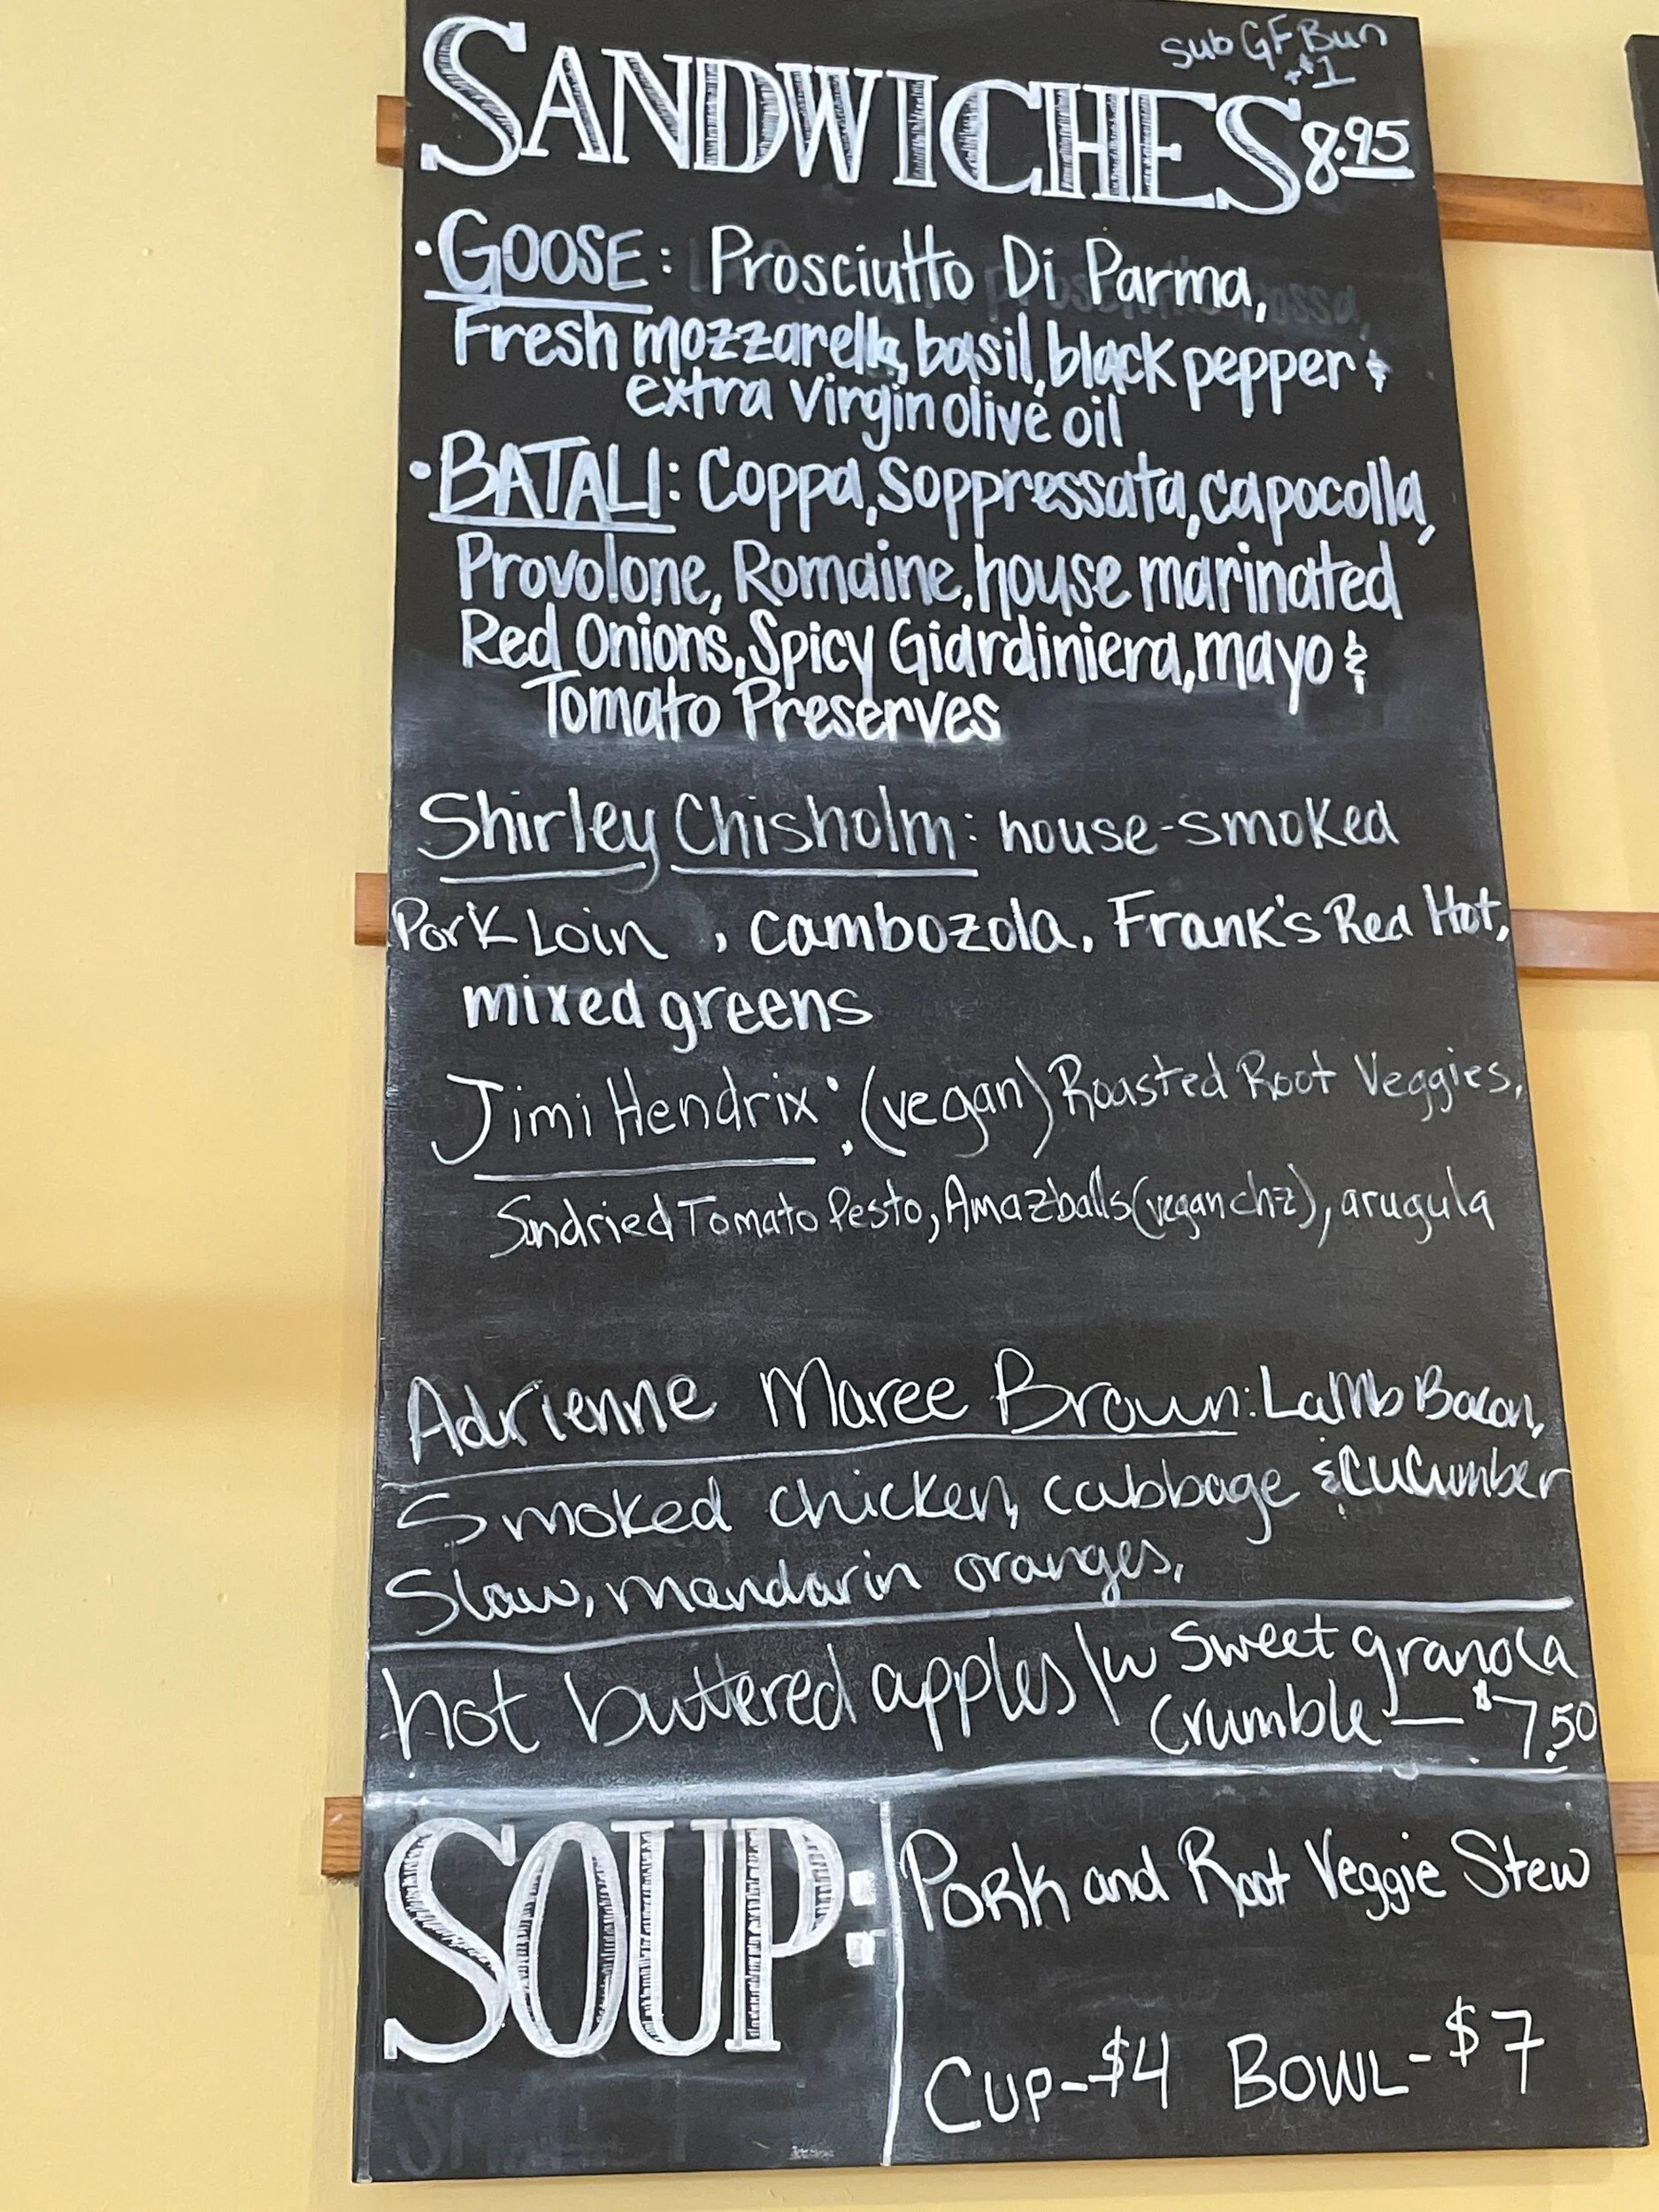 sub GF Bun
+$1
SANDWICHES 8.95
• GOOSE: Prosciutto Di Parma,
Fresh mozzarella, basil, black pepper &
extra virgin olive oil
• BATALI: Coppa, Soppressata, capocolla,
Provolone, Romaine, house marinated
Red Onions, Spicy Giardiniera, mayo &
Tomato Preserves
Shirley Chisholm: house-smoked
Pork Loin, cambozola, Frank's Red Hot,
mixed greens
Jimi Hendrix: (vegan) Roasted Root Veggies,
Sundried Tomato Pesto, Amazballs (vegan chz), arugula
Adrienne Maree Brown: Lamb Bacon,
Smoked chicken, cabbage & cucumber
Slaw, mandarin oranges,
hot buttered apples /w Sweet granola
Crumble — $7.50
SOUP: Pork and Root Veggie Stew
Cup-$4 Bowl-$7